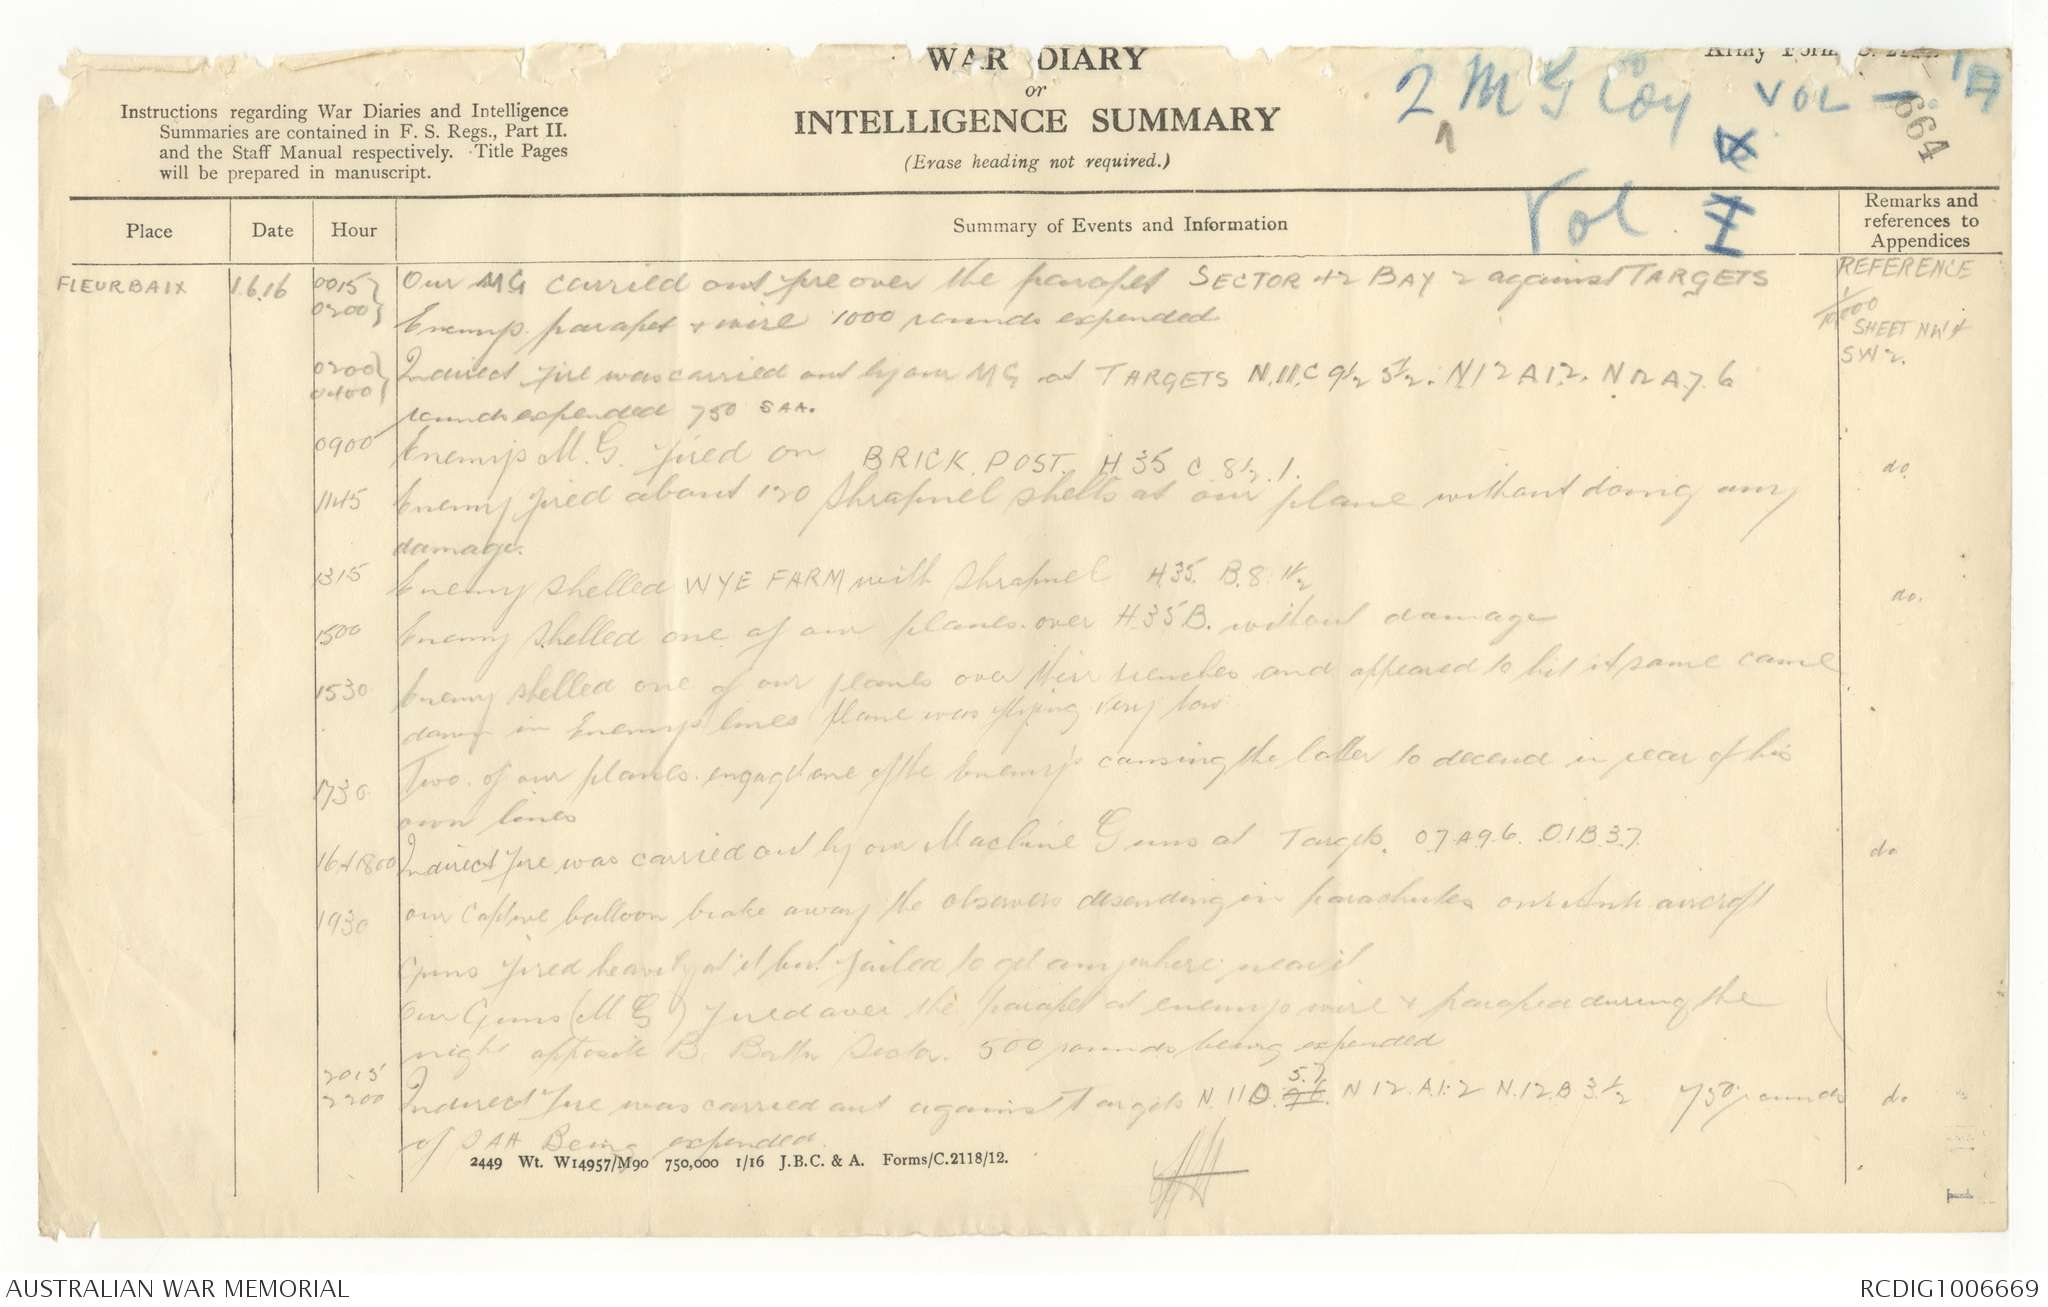 WAR DIARY
or
INTELLIGENCE SUMMARY
(Erase heading not required.)
Army Form C. 2118.
Instructions regarding War Diaries and Intelligence
Summaries are contained in F. S. Regs., Part II.
and the Staff Manual respectively. Title Pages
will be prepared in manuscript.
2 M G Coy VOL
664
Vol I
Place Date Hour Summary of Events and Information Remarks and references to Appendices
FLEURBAIX 1.6.16 0015 Our MG carried out fire over the parapet SECTOR 42 BAY 2 against TARGETS REFERENCE
0200 Enemys parapet & wire 1000 rounds expended 1/10000 SHEET NW 4
0200 Indirect fire was carried out by our MG at TARGETS N.11.C 9½ 5½. N12A12. N12A.7.6 SW 2.
0400
rounds expended 750 SAA.
0900 Enemys M.G. fired on BRICK POST. H 35 C 8½.1. do
1145 Enemy fired about 120 Shrapnel shells at our plane without doing any
damage.
1315 Enemy shelled WYE FARM with Shrapnel H.35. B.8. 1½ do.
1500 Enemy shelled one of our planes over H.35B. without damage
1530 Enemy shelled one of our planes over their trenches and appeared to hit it same came
down in Enemys lines plane was flying very low
1730 Two of our planes engaged one of the Enemys causing the latter to decend in rear of his
own lines
16 & 1800 Indirect fire was carried out by our Machine Guns at Targets. O7.A.9.6. O1B.3.7. do
1930 our Captive balloon brake away the observers desending in parachutes our Anti aircraft
Guns fired heavily at it but failed to get anywhere near it
Our Guns (M G) fired over the parapet at enemys wire & parapet during the
night opposite B. Battn Sector. 500 rounds being expended
2015
2200 Indirect fire was carried out against Targets N.11D. 5.7 N 12.A.1:2 N.12.B 3.½ 750 rounds do
of SAA Being expended.
2449 Wt. W14957/M90 750,000 1/16 J.B.C. & A. Forms/C.2118/12.
1
AUSTRALIAN WAR MEMORIAL
RCDIG1006669